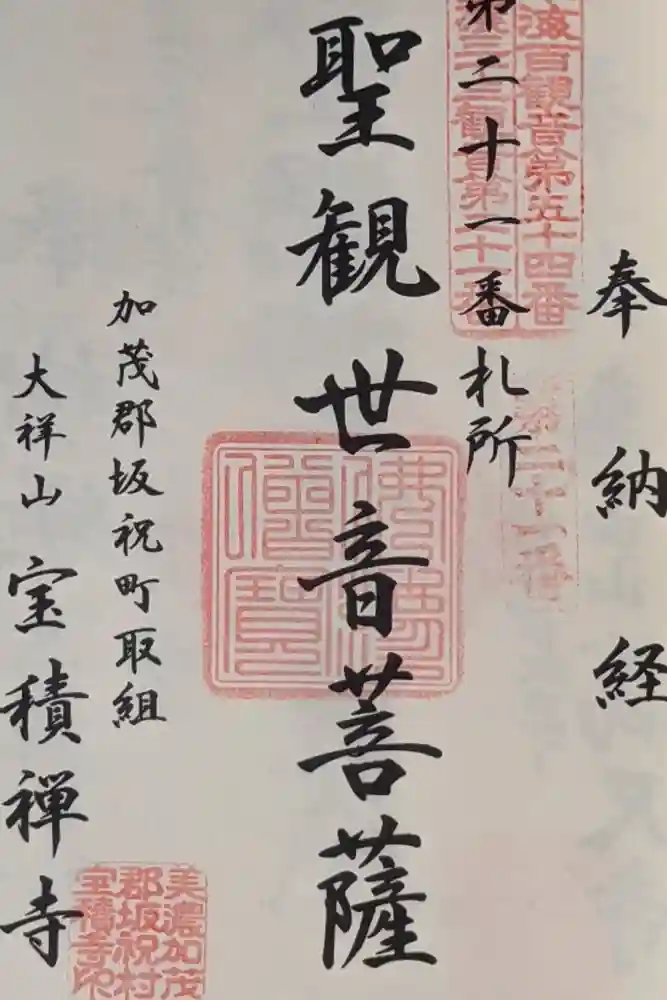 奉納経
東海百観音第五十四番
第二十一番札所
第二十一番
聖観世音菩薩
佛法僧寶
加茂郡坂祝町取組
大祥山 宝積禅寺
美濃加茂
郡坂祝村
宝積寺印